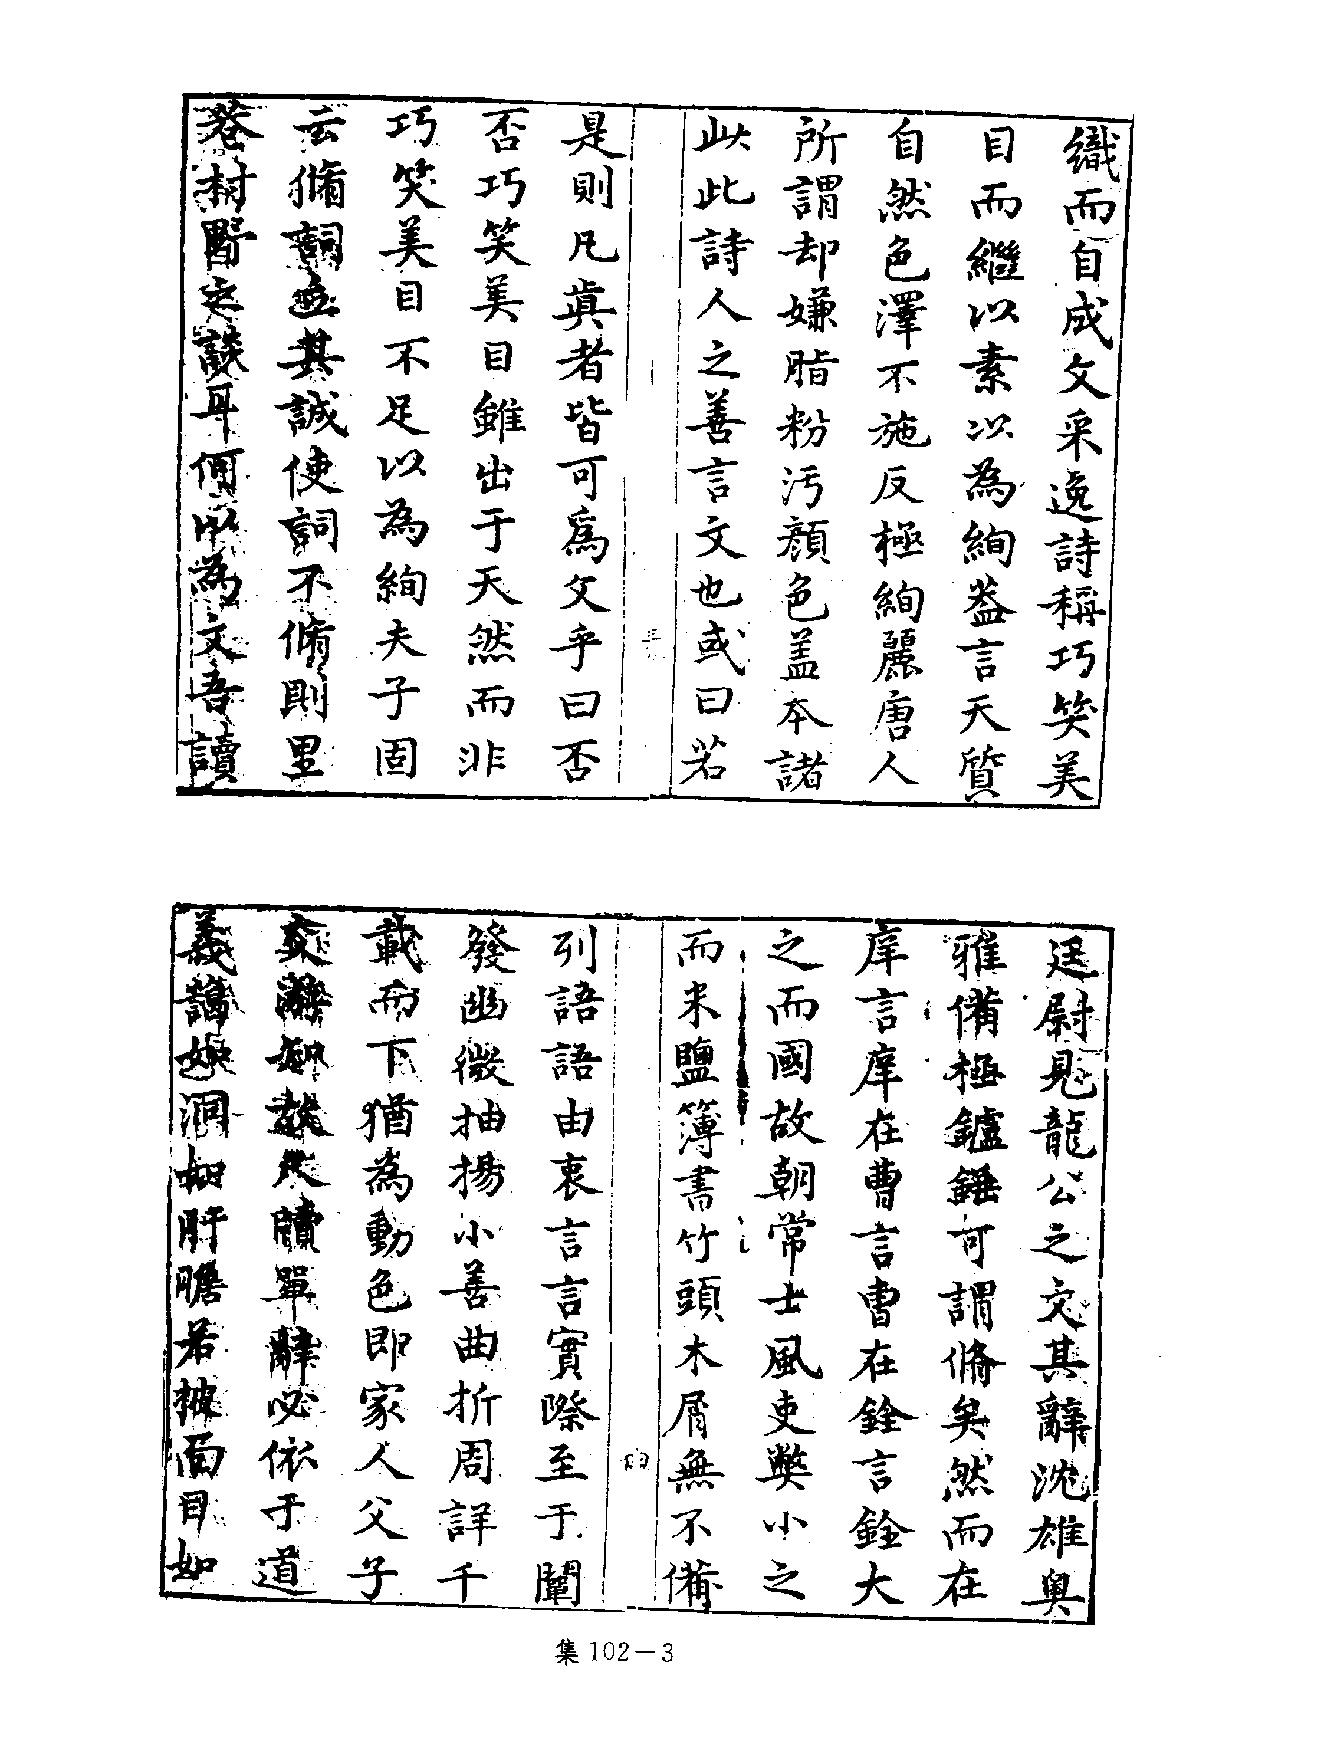 織而自成文采逸詩稱巧笑美
目而繼以素以為絢葢言天質
自然色澤不施反極絢麗唐人
所謂却嫌脂粉污顔色盖本諸
此此詩人之善言文也或曰若
是則凡眞者皆可爲文乎曰否
否巧笑美目雖出于天然而非
巧笑美目不足以為絢夫子固
云脩詞立其誠使詞不脩則里
巷村野之談耳何以為文吾讀
廷尉見龍公之文其辭沈雄奥
雅備極鑪錘可謂脩矣然而在
庠言庠在曹言曹在銓言銓大
之而國故朝常士風吏弊小之
而米鹽簿書竹頭木屑無不備
列語語由衷言言實際至于闡
發幽微抽揚小善曲折周詳千
載而下猶為動色即家人父子
交游知故尺牘單辭必依于道
義讀如洞如肝膽若披面目如
集102－3